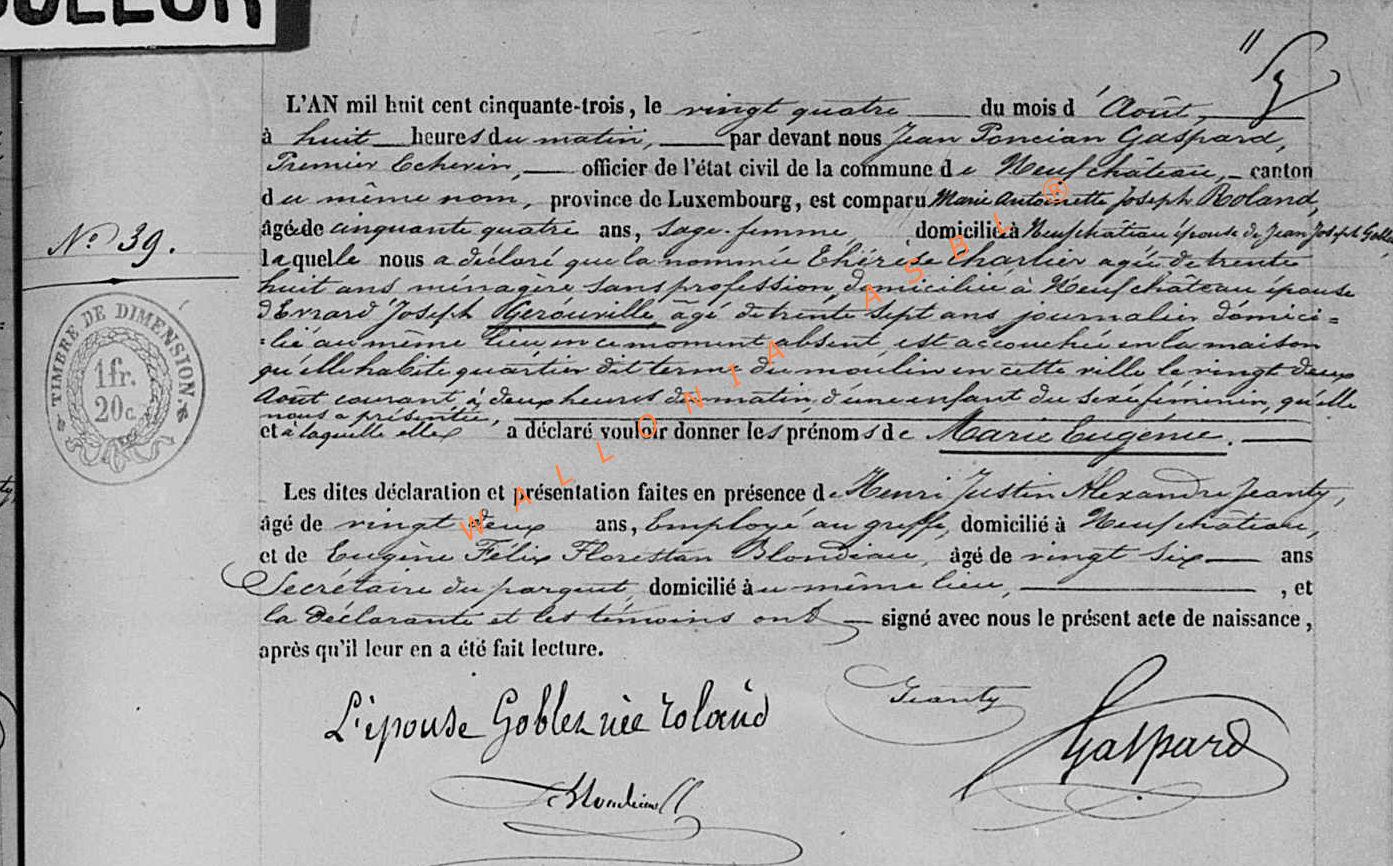 L'AN mil huit cent cinquante-trois, le vingt quatre du mois d'Août,
à huit heures du matin, par devant nous Jean Poncian Gaspard,
Premier Echevin, officier de l'état civil de la commune de Neufchâteau, canton
du même nom, province de Luxembourg, est comparu Marie Antoinette Joseph Roland,
N.o 39.
âgée de cinquante quatre ans, sage-femme, domiciliée à Neufchâteau épouse de Jean Joseph
laquelle nous a déclaré que la nommée Thérèse Charlier agée de trente
huit ans ménagère sans profession, domiciliée à Neufchâteau épouse
d'Evrard Joseph Gérouville, âgé de trente sept ans journalier domici=
=lié au même lieu en ce moment absent, est accouchée en la maison
qu'elle habite quartier dit terme du moulin en cette ville le vingt deux
Août courant à deux heures du matin, d'une enfant du sexe féminin, qu'elle
nous a présentée,
et à laquelle elle a déclaré vouloir donner les prénoms de Marie Eugénie.
TIMBRE DE DIMENSION.
1 fr.
20 c.
Les dites déclaration et présentation faites en présence de Henri Justin Alexandre Jeanty,
âgé de vingt deux ans, Employé au greffe, domicilié à Neufchâteau,
et de Eugène Félix Florestan Blondiau, âgé de vingt six ans
Secrétaire du parquet, domicilié au même lieu, , et
la déclarante et les témoins ont signé avec nous le présent acte de naissance,
après qu'il leur en a été fait lecture.
L'épouse Goblez née roland
Jeanty
Gaspard
Blondiau
WALLONIA ASBL ®